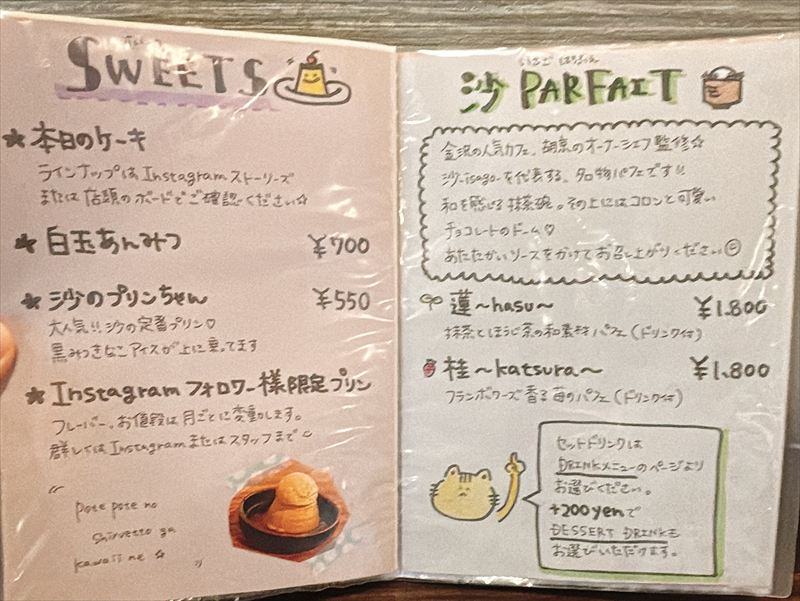 SWEETS
★ 本日のケーキ
ラインナップはInstagramストーリーズ
または店頭のボードでご確認ください☆
★ 白玉あんみつ ¥700
★ 沙のプリンちゃん ¥550
大人気!! 沙の定番プリン♡
黒みつきなこアイスが上に乗ってます
★ Instagramフォロワー様限定プリン
フレーバー、お値段は月ごとに変動します。
詳しくはInstagramまたはスタッフまで
pote pote no
shiruetto ga
kawaii ne ☆
沙 PARFAIT
金沢の人気カフェ、胡京のオーナーシェフ監修☆
沙-isago-を代表する、名物パフェです!!
和を感じる抹茶碗。その上にはコロンと可愛い
チョコレートのドーム♡
あたたかいソースをかけてお召し上がりください
蓮～hasu～ ¥1.800
抹茶とほうじ茶の和素材パフェ(ドリンク付)
桂～katsura～ ¥1.800
フランボワーズ香る苺のパフェ(ドリンク付)
セットドリンクは
DRINKメニューのページより
お選びください。
+200yenで
DESSERT DRINKも
お選びいただけます。